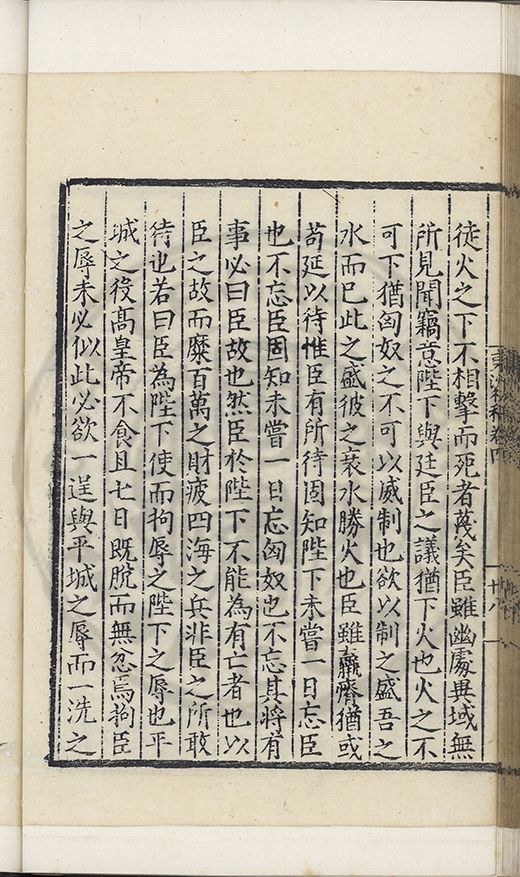 徒火之下不相擊而死者蔑矣臣雖幽處異域無
所見聞竊意陛下與廷臣之議猶下火也火之不
可下猶匈奴之不可以威制也欲以制之盛吾之
水而已此之盛彼之衰水勝火也臣雖羸瘠猶或
苟延以待惟臣有所待固知陛下未嘗一日忘臣
也不忘臣固知未嘗一日忘匈奴也不忘其將有
事必曰臣故也然臣於陛下不能為有亡者也以
臣之故而糜百萬之財疲四海之兵非臣之所敢
待也若曰臣為陛下使而拘辱之陛下之辱也平
城之役高皇帝不食且七日既脫而無忿焉拘臣
之辱未必似此必欲一逞與平城之辱而一洗之